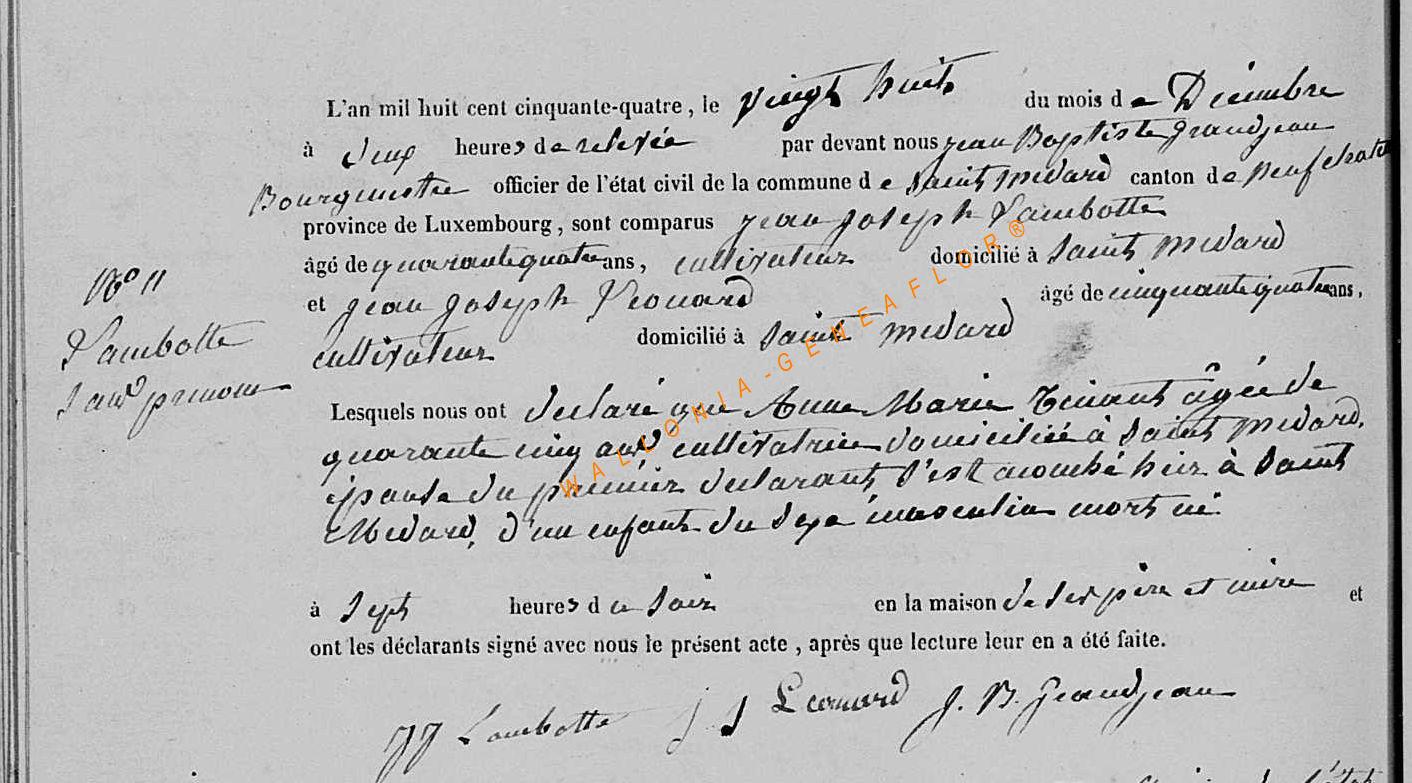 L'an mil huit cent cinquante-quatre, le vingt huit du mois de Décembre
à deux heures de relevée par devant nous jean Baptiste grandjean
Bourgmestre officier de l'état civil de la commune de Saint Médard canton de Neufchateau
province de Luxembourg, sont comparus jean joseph Lambotte
âgé de quarante quatre ans, cultivateur domicilié à Saint Médard
et jean joseph Léonard âgé de cinquante quatre ans,
cultivateur domicilié à Saint Médard
No 11
Lambotte
sans prenom
Lesquels nous ont declaré que Anne Marie Tinant âgée de
quarante cinq ans cultivatrice domiciliée à Saint Médard,
épouse du premier déclarant s'est accouché hier à Saint
Médard, d'un enfant du sexe masculin mort né
à Sept heures du Soir en la maison de ses père et mère et
ont les déclarants signé avec nous le présent acte, après que lecture leur en a été faite.
JJ Lambotte J J Léonard J. B. Grandjean
WALLONIA-GENEAFLOR®